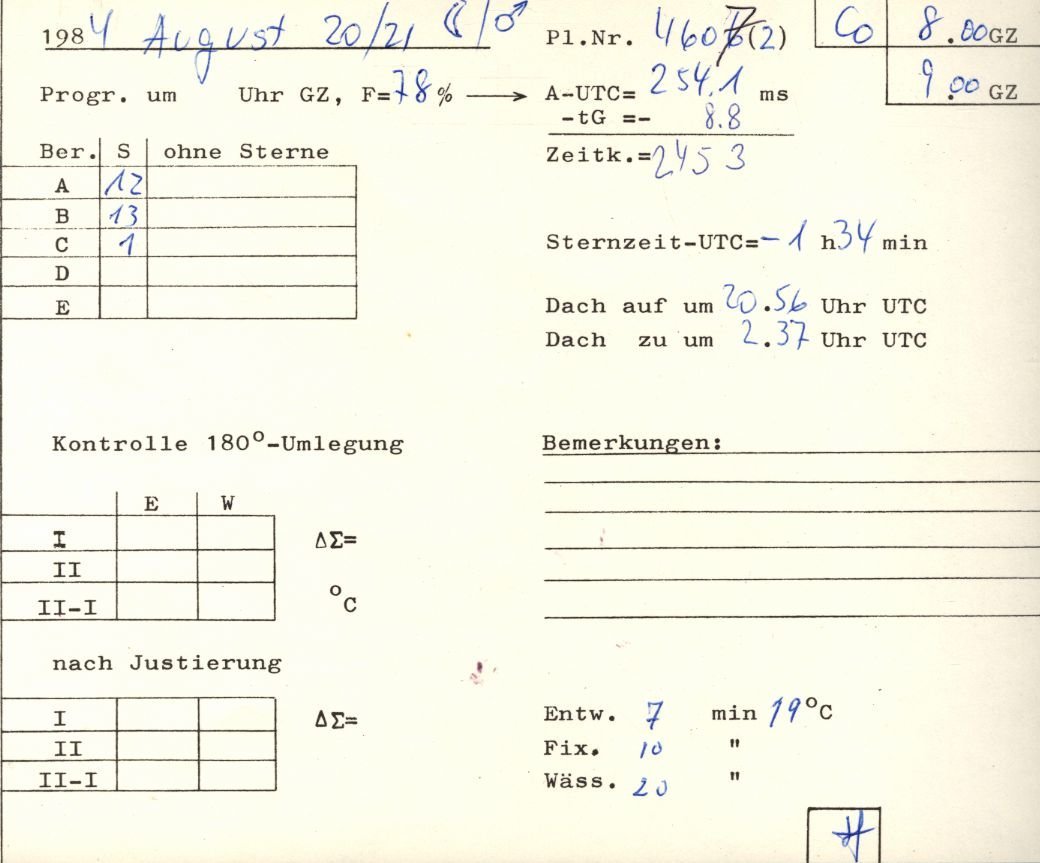 1984 August 20/21 ☾/♂ Pl.Nr. 4607(2) Co 8.00 GZ
9.00 GZ
Progr. um Uhr GZ, F=78% → A-UTC= 254.1 ms
-tG =- 8.8
Zeitk.=245 3
Ber. S ohne Sterne
A 12
B 13
C 1
D
E
Sternzeit-UTC=-1 h 34 min
Dach auf um 20.56 Uhr UTC
Dach zu um 2.37 Uhr UTC
Kontrolle 180°-Umlegung
E W
I ΔΣ=
II
II-I °C
Bemerkungen:
nach Justierung
I ΔΣ=
II
II-I
Entw. 7 min 19°C
Fix. 10 "
Wäss. 20 "